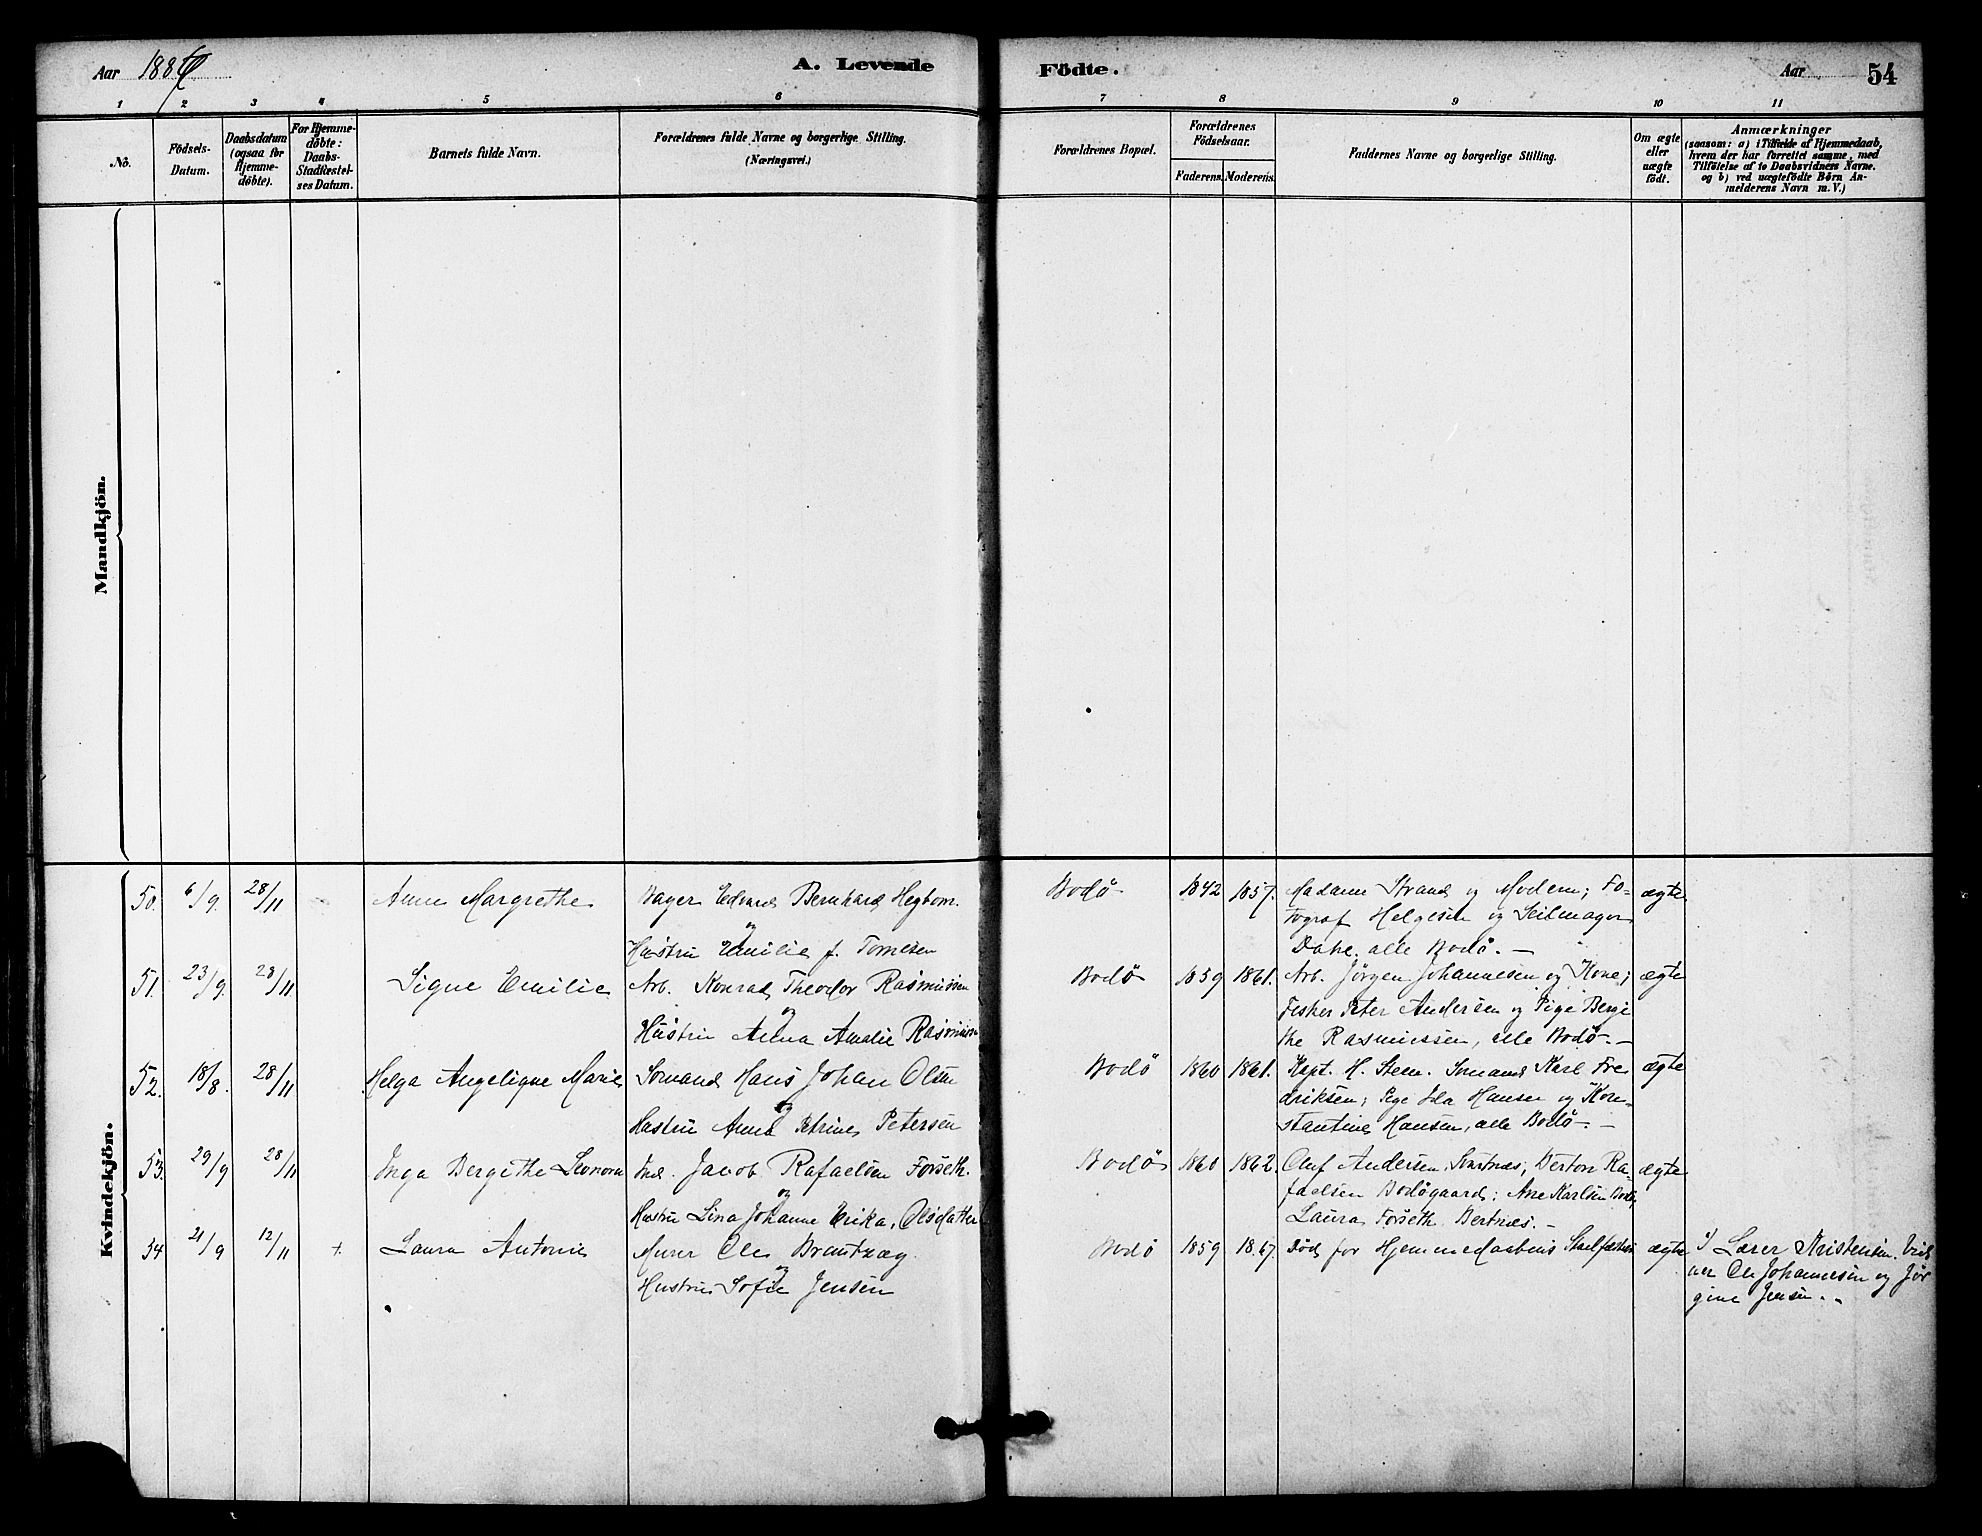 Aar 1886
A. Levende Födte.
Aar 54
1 2 3 4 5 6 7 8 9 10 11
No.
Födsels-Datum.
Daabsdatum (ogsaa for Hjemme-döbte).
For Hjemme-döbte: Daabs-Stadfæstel-ses Datum.
Barnets fulde Navn.
Forældrenes fulde Navne og borgerlige Stilling. (Næringsvei.)
Forældrenes Bopæl.
Forældrenes Födselsaar.
Faderens. Moderens.
Faddernes Navne og borgerlige Stilling.
Om ægte eller uægte födt.
Anmærkninger
(saasom: a) i Tilfælde af Hjemmedaab,
hvem der har forrettet samme, med
Tilföielse af to Daabsvidners Navne.
og b) ved uægtefödte Börn An-
melderens Navn m. V.)
Mandkjön.
Kvindekjön.
50. 6/9. 28/11 Anna Margrethe Bager Edvard Bernhard Hegbom. Bodö 1842 1857. Madame Strand og Moderen; Fo- ægte
og tograf Helgesen og Seilmager
Hustru Emilie f. Tornesen Dahe, alle Bodö. —
51. 23/9. 28/11 Signe Emilie Arb. Konrad Theodor Rasmussen Bodö 1859 1861. Arb. Jørgen Johannesen og Kone; ægte
og Fisker Peter Andersen og Pige Bergi
Hustru Anna Amalie Rasmussen the Rasmussen, alle Bodö. —
52. 18/8. 28/11 Helga Angelique Marie Sömand Hans Johan Olsen Bodö 1860 1861. Kapt. H. Steen. Sömand Karl Fre ægte
og driksen; Pige Ida Hansen og Kon-
Hustru Anna Petrine Petersen stantine Hansen, alle Bodö. —
53. 29/9 28/11 Inga Bergithe Leonora Ind. Jacob Rafaelsen Forseth. Bodö 1860 1862. Oluf Andersen, Ra- ægte
og faelsen Bodögaard; Ane Karlsen Bodö,
Hustru Lina Johanne Erika Olsdatter Laura Forseth Bertnæs. —
54. 21/9 12/11 +. Laura Antonie Murer Ole Brautzæg Bodö 1859 1867. Död for Hjemmedaabens Stadfæstelse ægte 1/ Lærer Kristensen. Vid
og ner Ole Johannesen og Jör
Hustru Sofie Jensen gine Jensen. „